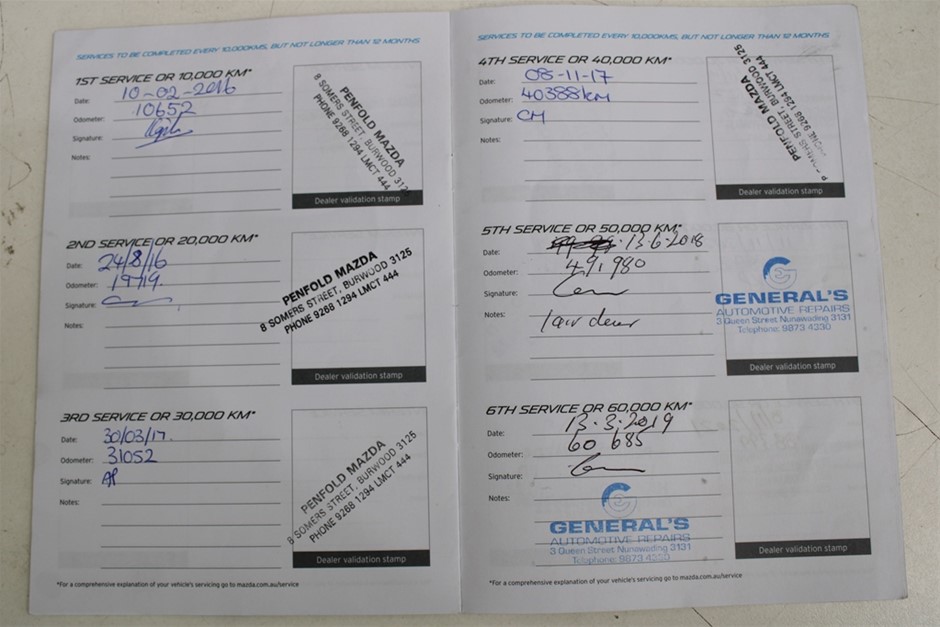 SERVICES TO BE COMPLETED EVERY 10,000KMS, BUT NOT LONGER THAN 12 MONTHS
1ST SERVICE OR 10,000 KM*
Date: 10-02-2016
Odometer: 10652
Signature:
Notes:
PENFOLD MAZDA
8 SOMERS STREET, BURWOOD 312
PHONE 9268 1294 LMCT 444
Dealer validation stamp
2ND SERVICE OR 20,000 KM*
Date: 24/8/16
Odometer: 19719.
Signature:
Notes:
PENFOLD MAZDA
8 SOMERS STREET, BURWOOD 3125
PHONE 9268 1294 LMCT 444
Dealer validation stamp
3RD SERVICE OR 30,000 KM*
Date: 30/03/17.
Odometer: 31052
Signature:
Notes:
PENFOLD MAZDA
8 SOMERS STREET, BURWOOD 3125
PHONE 9268 1294 LMCT 444
Dealer validation stamp
*For a comprehensive explanation of your vehicle's servicing go to mazda.com.au/service
SERVICES TO BE COMPLETED EVERY 10,000KMS, BUT NOT LONGER THAN 12 MONTHS
4TH SERVICE OR 40,000 KM*
Date: 08-11-17
Odometer: 40388KM
Signature: CM
Notes:
PENFOLD MAZDA
SOMERS STREET, BURWOOD 3125
PHONE 9268 1294 LMCT 444
Dealer validation stamp
5TH SERVICE OR 50,000 KM*
Date: 13-6-2018
Odometer: 49,980
Signature:
Notes:
GENERAL'S
AUTOMOTIVE REPAIRS
3 Queen Street Nunawading 3131
Telephone: 9873 4330
Dealer validation stamp
6TH SERVICE OR 60,000 KM*
Date: 13.3.2019
Odometer: 60 685
Signature:
Notes:
GENERAL'S
AUTOMOTIVE REPAIRS
3 Queen Street Nunawading 3131
Telephone: 9873 4330
Dealer validation stamp
*For a comprehensive explanation of your vehicle's servicing go to mazda.com.au/service